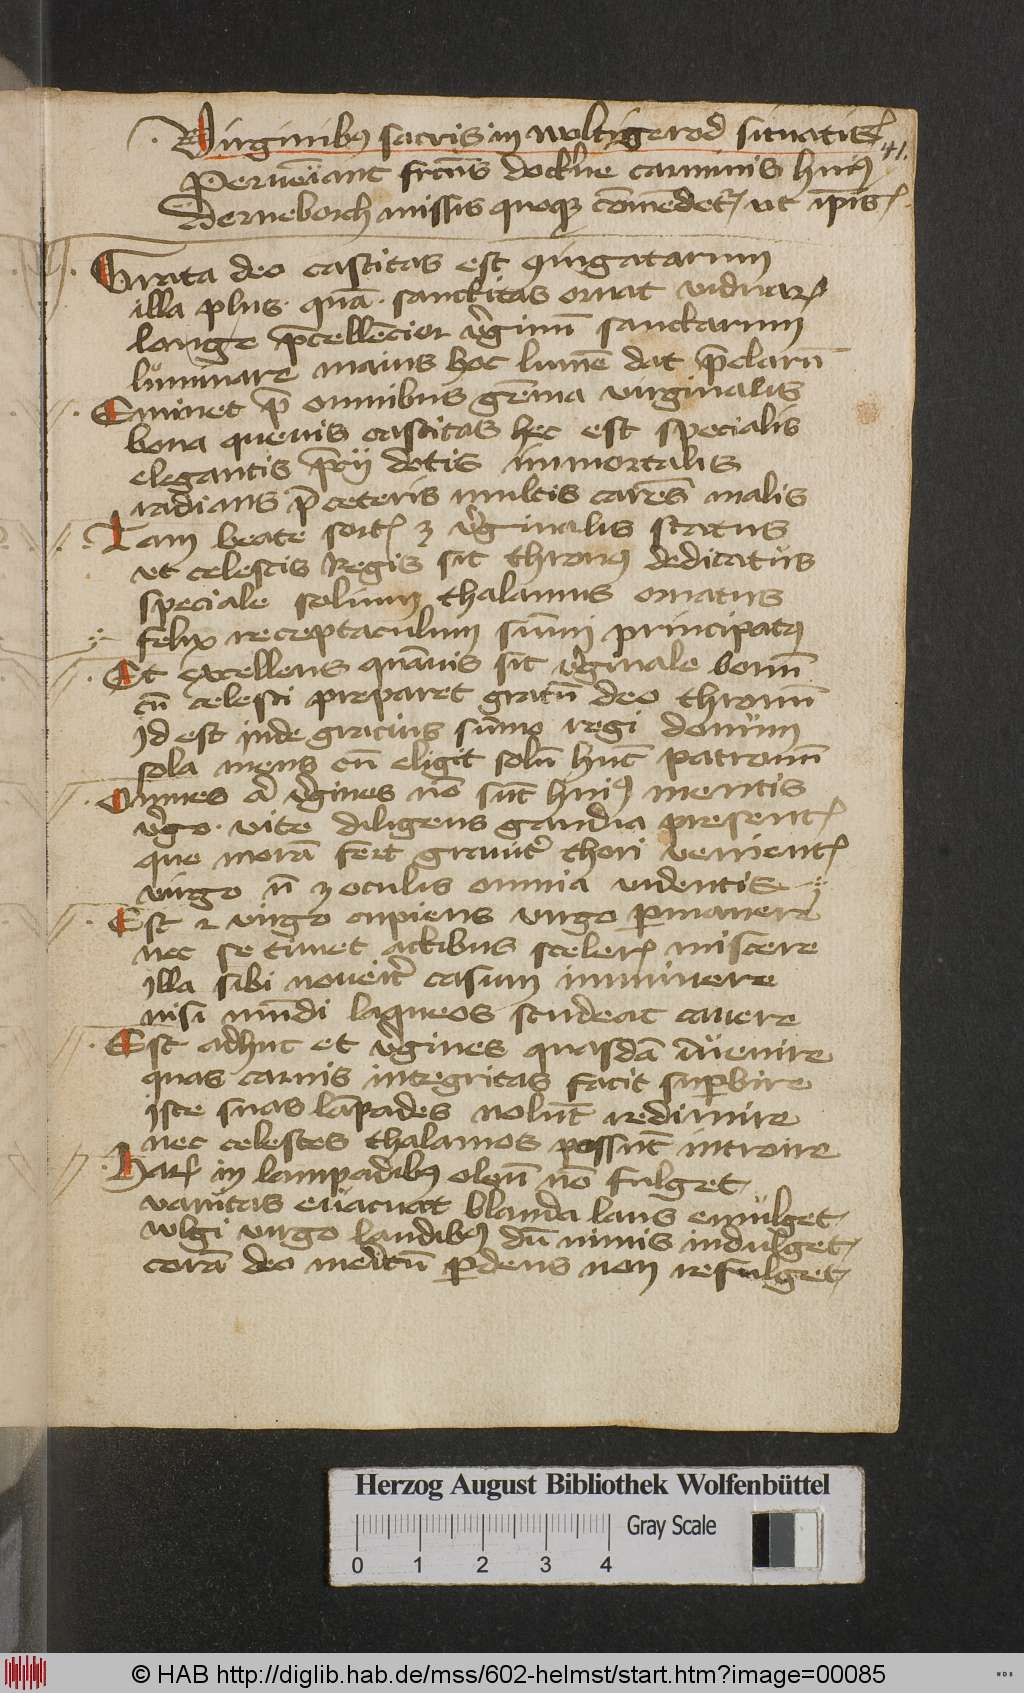 Virginibꝯ sacris in woltigerod situatis
41.
Perueniant fruct᷒ doctrine carminis huiꝯ
Derneborch missis quoqꝫ cōmēdet᷑ vt ip̄is
Grata deo castitas est coniugatarum
illa plus quā sanctitas ornat viduarꝝ
longe p̄cellēcior v̓ginū sanctarum
luminare maius hoc lumē dat p̄clarū
Eminet p̄ omnibus gēma virginalis
bona queuis castitas hec est specialis
elegantis p̄cij dotis immortalis
radians p̄ ceteris multis carēs malis
Tam beate sortꝭ ꝫ v̓ginalis status
vt celestis Regis sit thronꝯ dedicatus
speciale solium thalamus ornatus
felix receptaculum sūmi principatꝯ
Et excellens quāuis sit v̓ginale bonū
cū celesti preparet gratū deo thronū
Id est inde gracius sūmo regi donum
sola mens cū eligit solū hūc patronū
Omnes a v̓gines nō sūt huiꝯ mentis
v̓go vite diligens gaudia presentꝭ
que morā fert grauit̓ thori venientꝭ
virgo nō ꝫ oculis omnia videntis
Est ⁊ virgo cupiens virgo ꝑmanere
nec se timet actibus scelerꝭ miscere
illa sibi nouerit casum imminere
nisi mūdi laqueos studeat cauere
Est adhuc et v̓gines quasdā īuenire
quas carnis integritas facit suꝑbire
iste suas lāpades nolūt redimire
nec celestes thalamos possūt introire
Harꝝ in lampadibꝯ oleū nō fulget
vanitas euacuat blanda laus emulget
wlgi virgo laudibꝯ dū nimis indulget
corā deo meritū ꝑdens non refulget
Herzog August Bibliothek Wolfenbüttel
Gray Scale
0 1 2 3 4
© HAB http://diglib.hab.de/mss/602-helmst/start.htm?image=00085